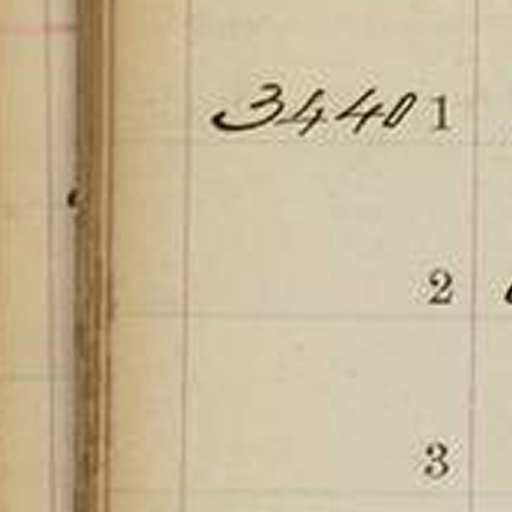 3440 1
2
3